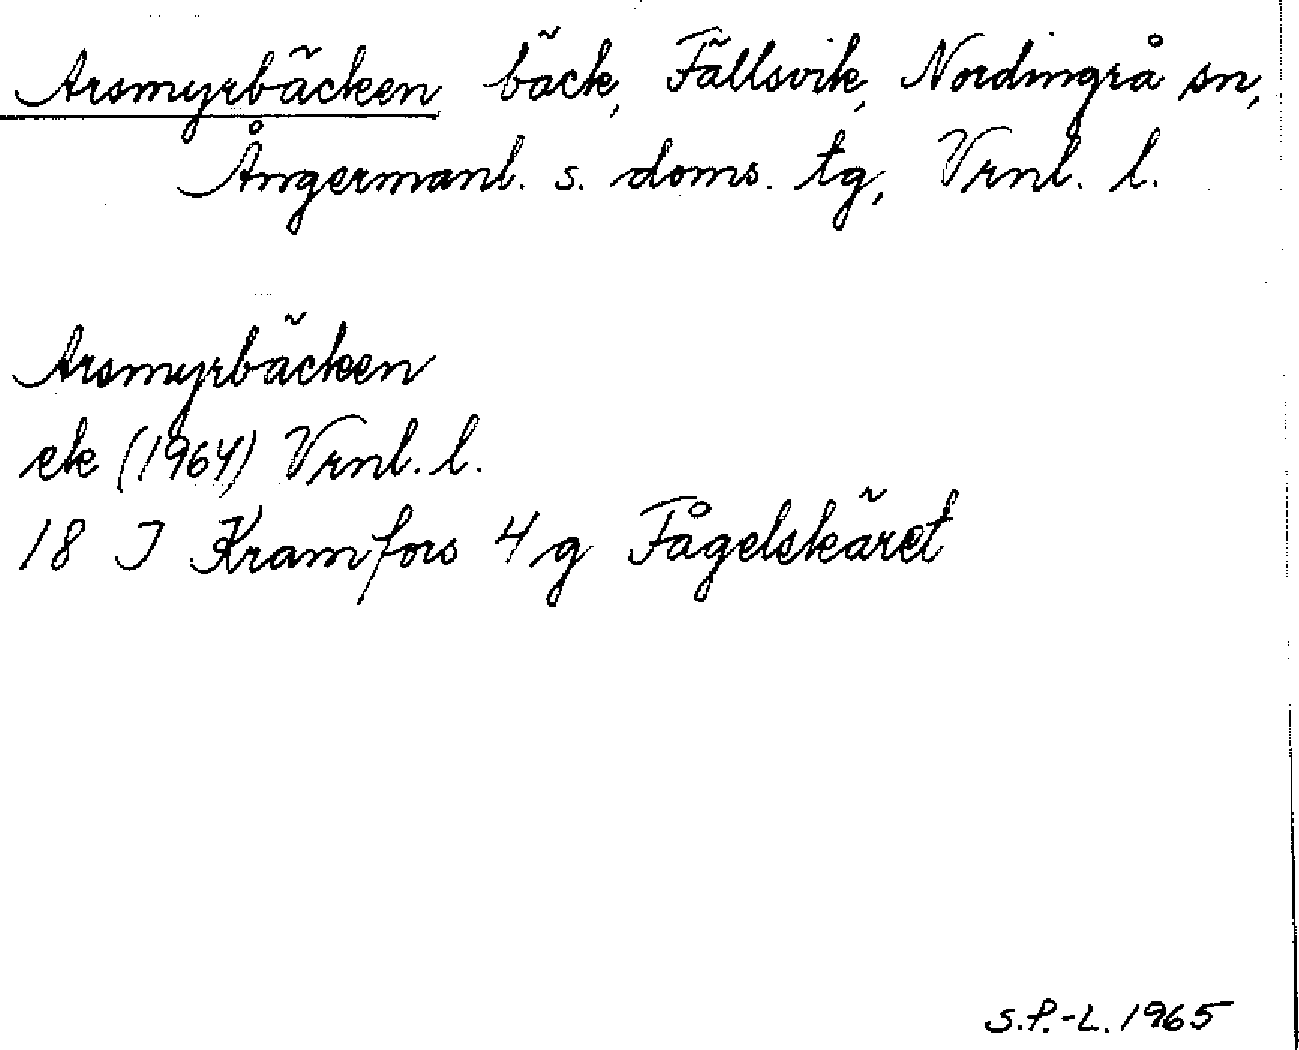 Arsmyrbäcken bäck, Fällsvik, Nordingrå sn,
Ångermanl. s. doms. tg, Vrnl. l.
Arsmyrbäcken
ek (1964) Vrnl. l.
18 J Kramfors 4 g Fågelskäret
S.P.-L. 1965